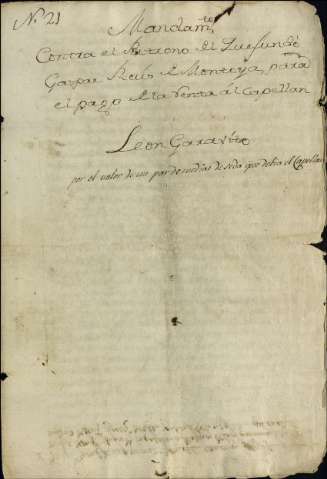 Nº 21
Mandam.to
Contra el Patrono del que fundó
Gaspar Ruis de Montoya, para
el pago de la renta al Capellan
Leon Garavito
por el valor de un par de medias de seda que debia el Capellan